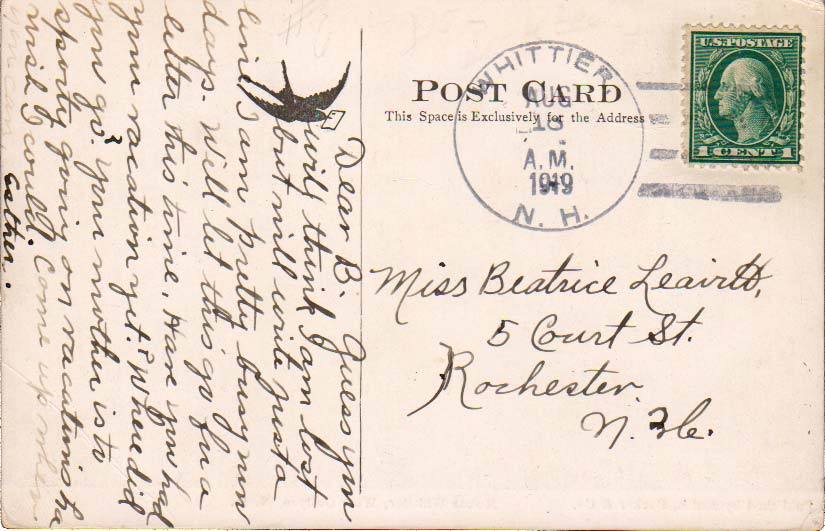 POST CARD
This Space is Exclusively for the Address
WHITTIER
AUG
18
A.M.
1919
N. H.
U.S. POSTAGE
1 CENT 1
Dear B. Guess you
will think I am lost
but will write just a
line I am pretty busy now
days. Will let this go for a
letter this time. Have you had
your vacation yet? Where did
you go? Your mother is so
sporty going on vacations ha
wish I could. Come up when
you can
Esther.
Miss Beatrice Leavitt,
5 Court St.
Rochester
N. H.